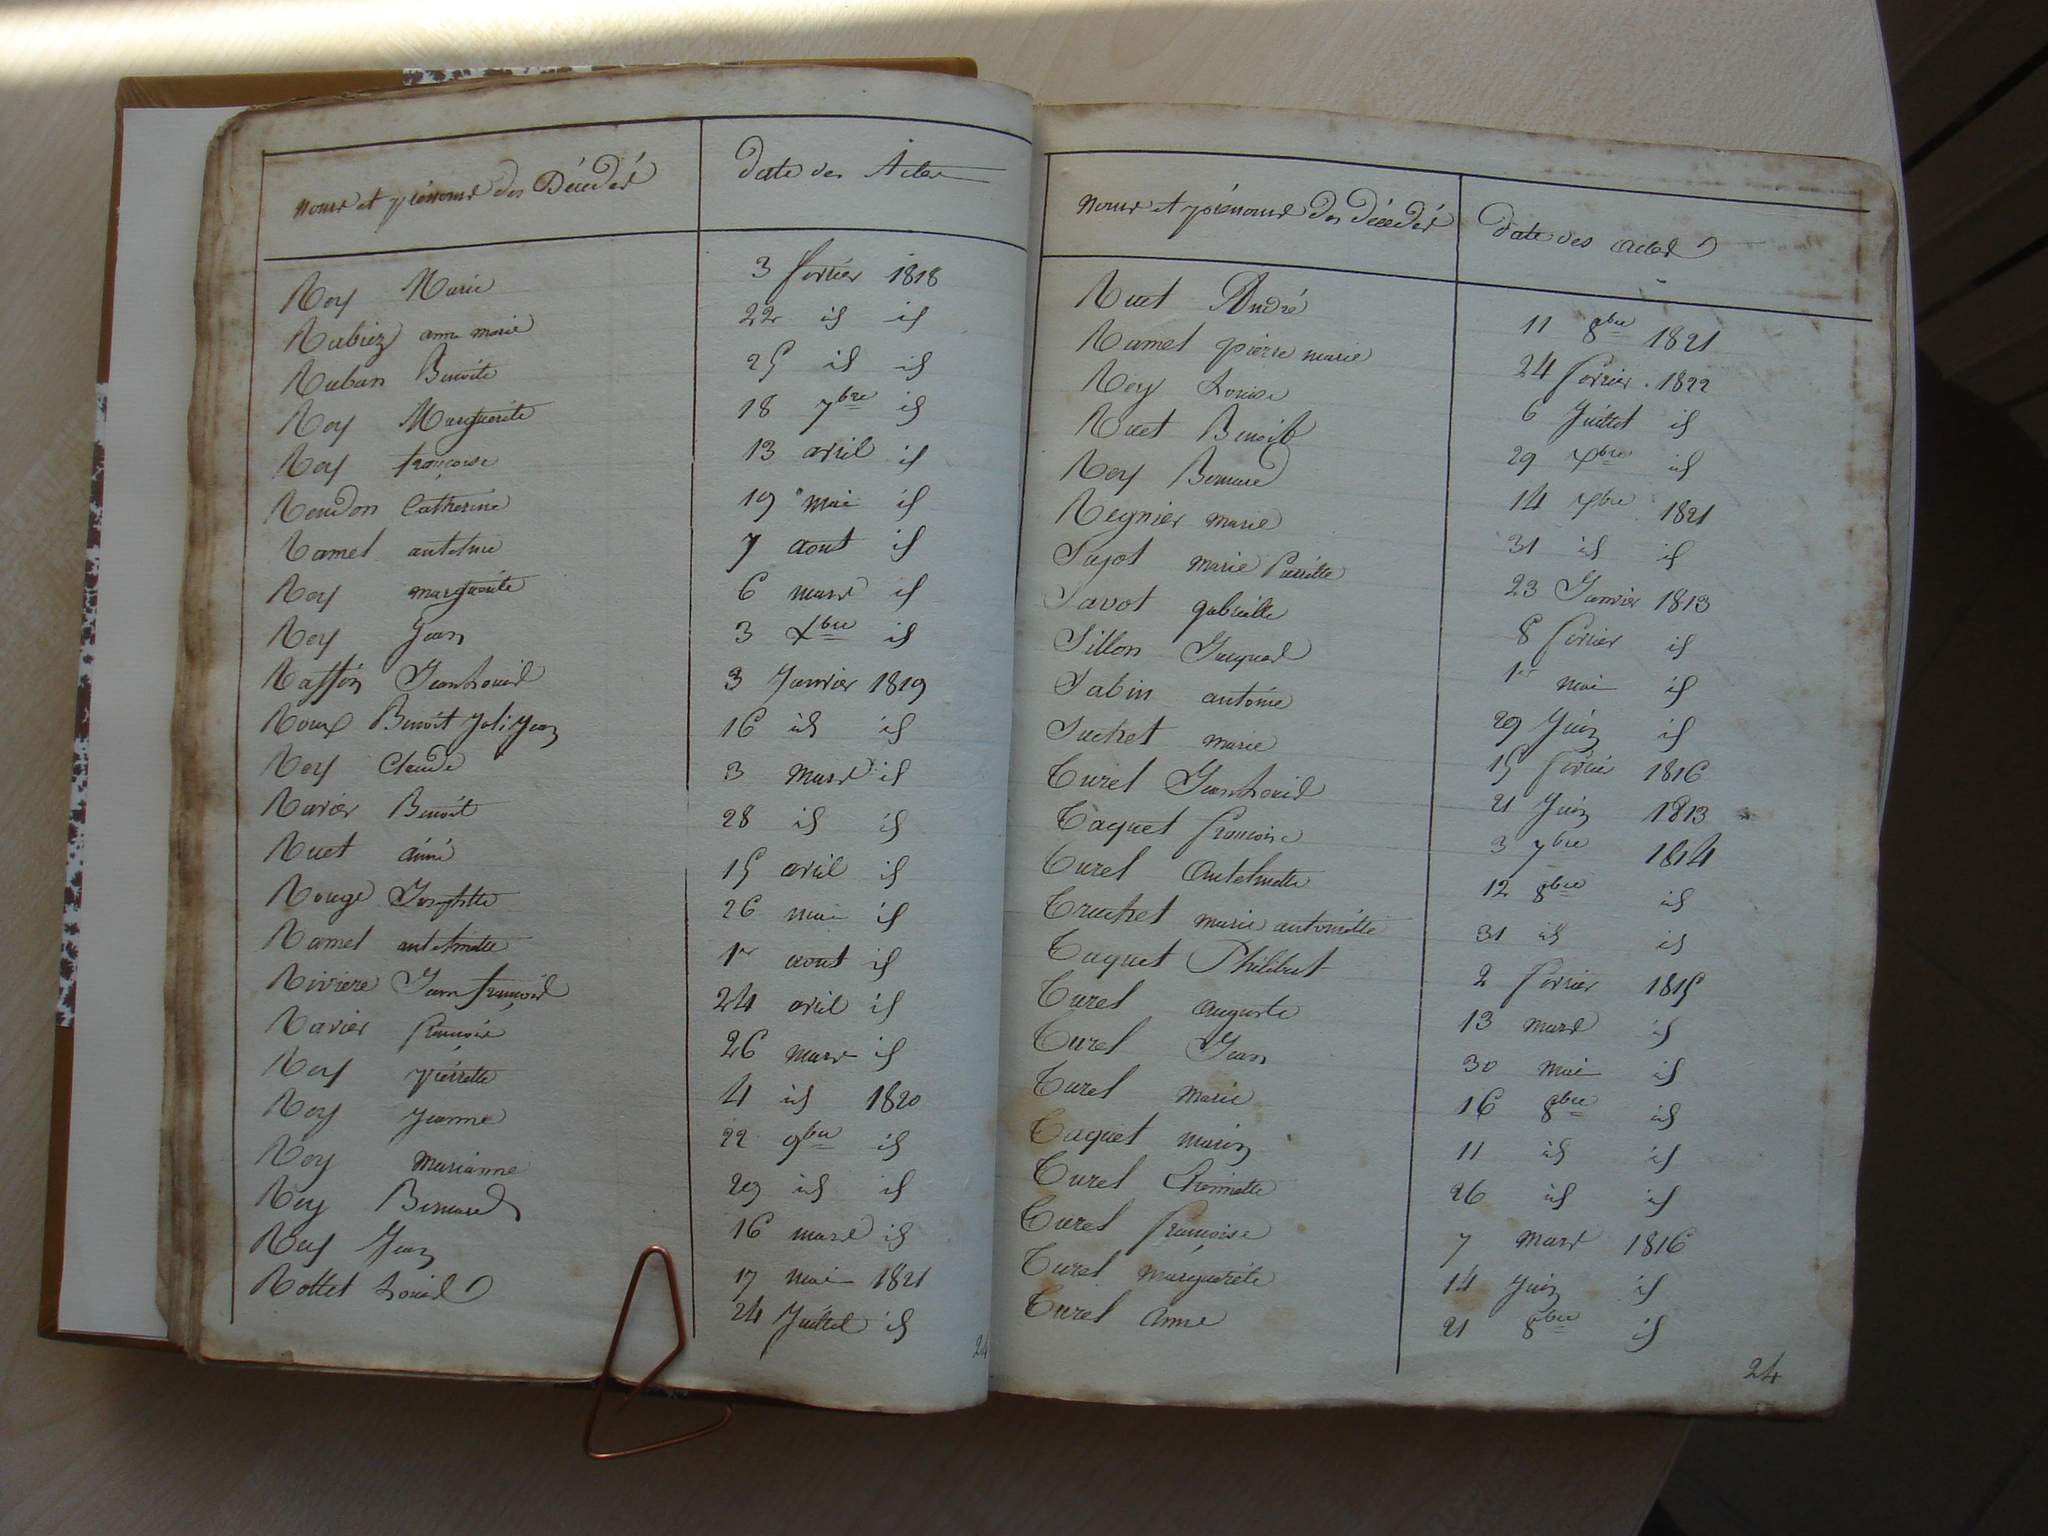 noms et prénoms des Décédés date des Actes
Roy Marie 3 fevrier 1818
Rubiez anne marie 22 id id
Ruban Benoite 25 id id
Roy Marguerite 18 7bre id
Roy françoise 13 avril id
Rendon Catherine 19 mai id
Ramel antelme 7 aout id
Roy marguerite 6 mars id
Roy Jean 3 Xbre id
Raffin Jean Louis 3 Janvier 1819
Roux Benoit Joli Jean 16 id id
Roy Claude 3 mars id
Ravier Benoit 28 id id
Ruet aimé 15 avril id
Rouge Josephtte 26 mai id
Ramel antelmette 1er aout id
Riviere Jean françois 24 avril id
Ravier françoise 26 mars id
Roy pierrette 4 id 1820
Roy Jeanne 22 9bre id
Roy Marianne 29 id id
Roy Bernard 16 mars id
Rey Jean 17 mai 1821
Rottet Louis 24 Juillet id
24
noms et prénoms des décédés date des actes
Ruet André 11 8bre 1821
Ramel pierre marie 24 fevrier 1822
Roy Louise 6 Juillet id
Ruet Benoit 29 Xbre id
Roy Bernard 14 Xbre 1821
Regnier marie 31 id id
Sajot marie Pierrette 23 Janvier 1813
Savot gabrielle 8 fevrier id
Sillon Jacques 1er mai id
Sabin antoine 29 Juin id
Suchet marie 15 fevrier 1816
Curel Jean Louis 21 Juin 1813
Caquet françoise 3 7bre 1814
Curel antelmette 12 8bre id
Cruchet marie antoinette 31 id id
Caquet Philibert 2 fevrier 1815
Curel auguste 13 mars id
Curel Jean 30 mai id
Curel marie 16 8bre id
Caquet marin 11 id id
Curel Etiennette 26 id id
Curel françoise 7 mars 1816
Curel marguerite 14 Juin id
Curel anne 21 8bre id
24